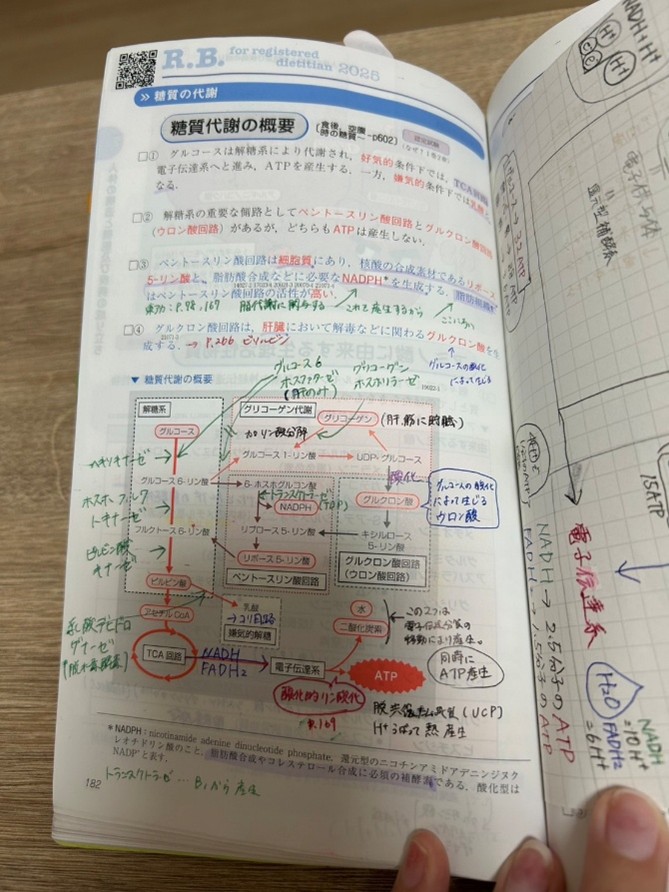 R.B. for registered
dietitian 2025
糖質の代謝
糖質代謝の概要
食後、空腹
時の糖質─p602
□① グルコースは解糖系により代謝され，好気的条件下では，TCA回路，
電子伝達系へと進み，ATPを産生する．一方，嫌気的条件下では乳酸と
なる．
□② 解糖系の重要な側路としてペントースリン酸回路とグルクロン酸回路
(ウロン酸回路)があるが，どちらもATPは産生しない．
□③ ペントースリン酸回路は細胞質にあり，核酸の合成素材であるリボース
5-リン酸と，脂肪酸合成などに必要なNADPH*を生成する．脂肪組織
はペントースリン酸回路の活性が高い．
脂代謝に関与する これで産生するから
□④ グルクロン酸回路は，肝臓において解毒などに関わるグルクロン酸を生
成する．→P.266 ビリルビン
グルコースの酸化
によって生じる
グルコース6
ホスファターゼ
(肝のみ)
グリコーゲン
ホスホリラーゼ
▼ 糖質代謝の概要
解糖系
グリコーゲン代謝
グリコーゲン
(肝、筋に貯蔵)
グルコース
加リン酸分解
グルコース1-リン酸
UDP-グルコース
ヘキソキナーゼ
酸化
グルコース6-リン酸
6-ホスホグルコン酸
トランスケトラーゼ
NADPH
グルクロン酸
グルコースの酸化
によって生じる
ウロン酸
ホスホフルクトキナーゼ
フルクトース6-リン酸
リブロース5-リン酸
キシルロース
5-リン酸
ピルビン酸
キナーゼ
リボース5-リン酸
グルクロン酸回路
(ウロン酸回路)
ペントースリン酸回路
ピルビン酸
アセチルCoA
乳酸
→コリ回路
嫌気的解糖
水
二酸化炭素
この2つは
電子伝達系の
産生。
同時に
ATP産生
乳酸デヒドロ
ゲナーゼ
(脱水素酵素)
TCA回路
NADH
FADH₂
電子伝達系
ATP
酸化的リン酸化
P.169
脱共役たんぱく質(UCP)
熱産生
*NADPH：nicotinamide adenine dinucleotide phosphate．還元型のニコチンアミドアデニンジヌク
レオチドリン酸のこと．脂肪酸合成やコレステロール合成に必須の補酵素である．酸化型は
NADP⁺と表す．
182
トランスケトラーゼ … B₁から産生
NADH+H⁺
H⁺
H⁺
還元型補酵素
15ATP
電子伝達系
NADH → 2.5分子のATP
FADH₂ → 1.5分子のATP
H₂O
NADH
=10H⁺
FADH₂
=6H⁺